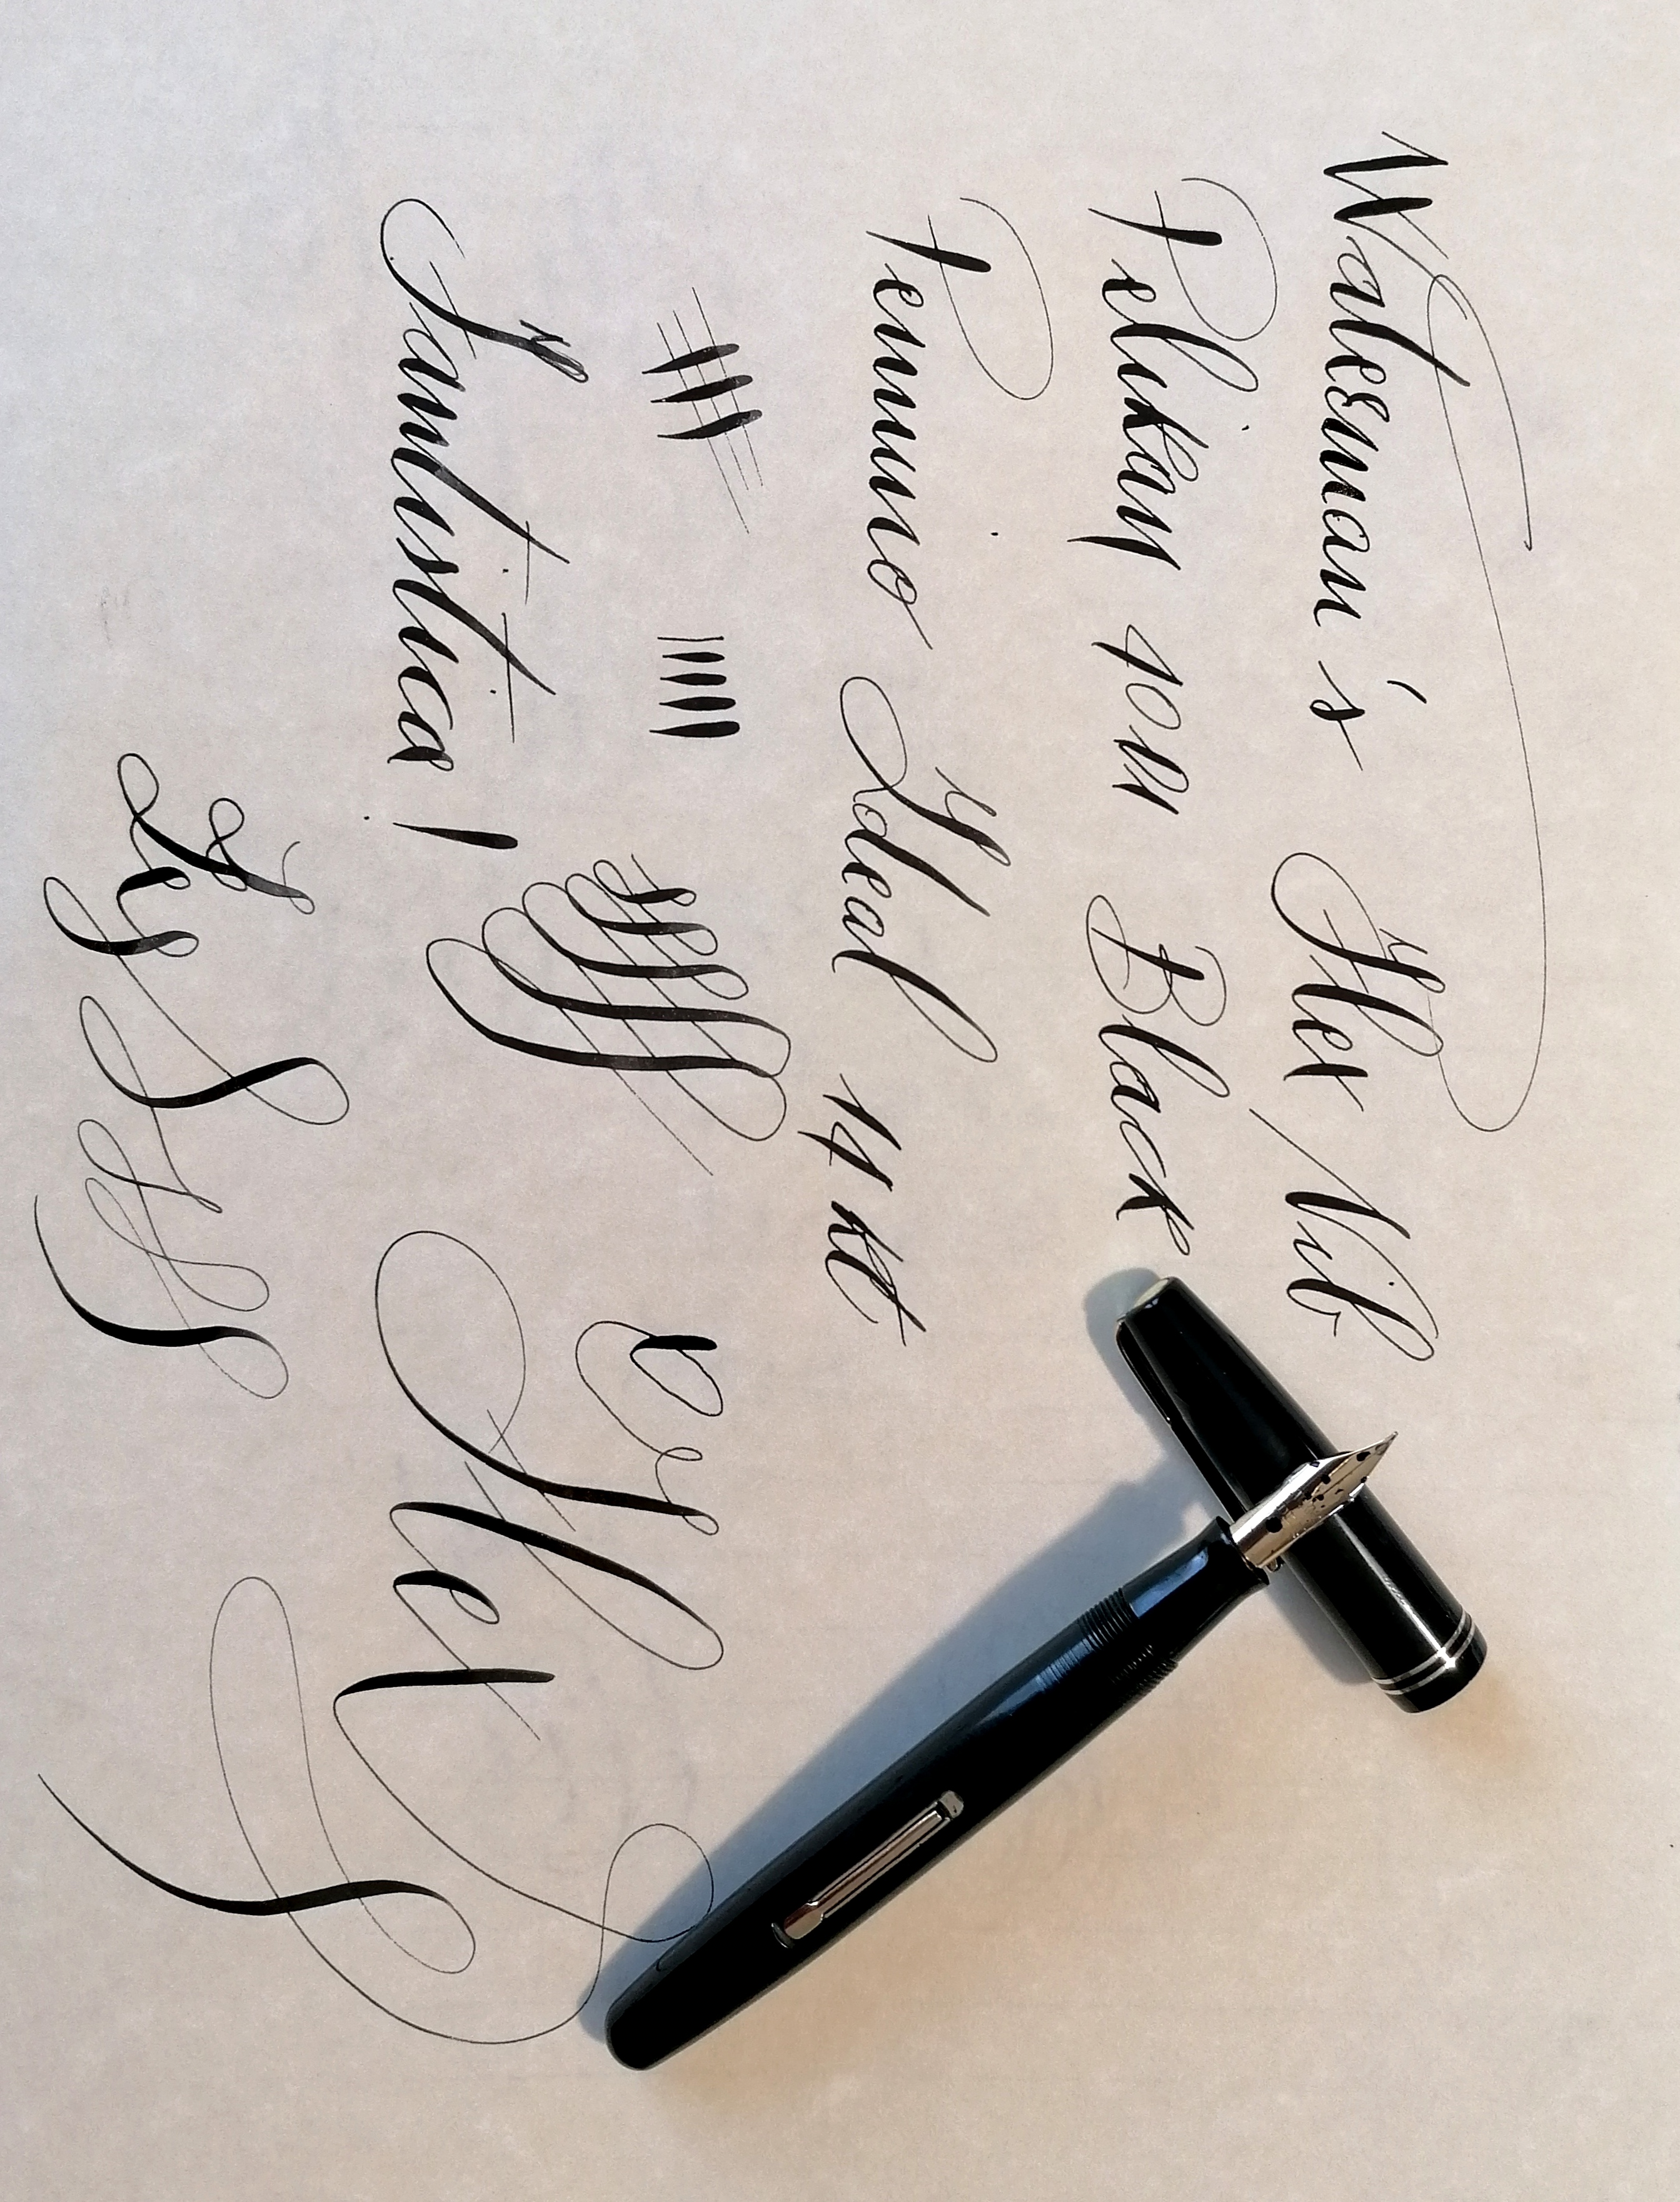 Waterman's Flex Nib
Pelikan 4001 Black
Pennino Ideal 14 kt
Fantastica!
Flex